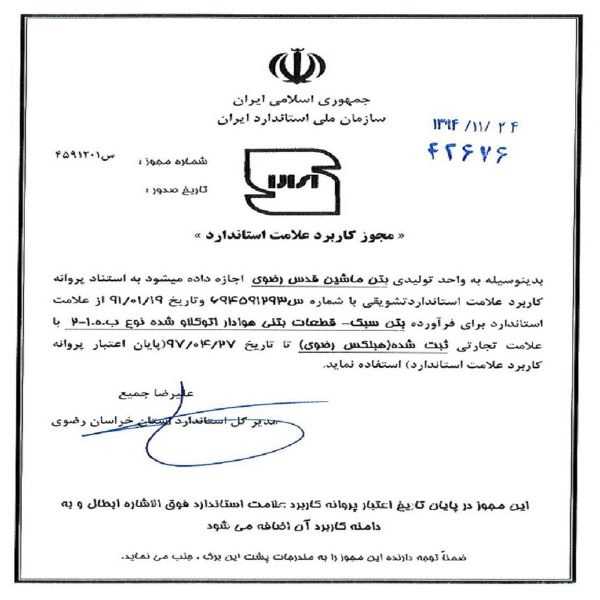 جمهوری اسلامی ایران
سازمان ملی استاندارد ایران
۱۳۹۴/۱۱/۲۴
۴۲۶۷۶
شماره مجوز : س۴۵۹۱۲۰۱
تاریخ صدور :
« مجوز کاربرد علامت استاندارد »
بدینوسیله به واحد تولیدی بتن ماشین قدس رضوی اجازه داده میشود به استناد پروانه
کاربرد علامت استانداردتشویقی با شماره س۶۹۴۵۹۱۲۹۳ وتاریخ ۹۱/۰۱/۱۹ از علامت
استاندارد برای فرآورده بتن سبک- قطعات بتنی هوادار اتوکلاو شده نوع ب.ه.۱-۲ با
علامت تجارتی ثبت شده(هبلکس رضوی) تا تاریخ ۹۷/۰۴/۲۷(پایان اعتبار پروانه
کاربرد علامت استاندارد) استفاده نماید.
علیرضا جمیع
مدیر کل استاندارد استان خراسان رضوی
این مجوز در پایان تاریخ اعتبار پروانه کاربرد علامت استاندارد فوق الاشاره ابطال و به
دامنه کاربرد آن اضافه می شود
ضمناً توجه دارنده این مجوز را به مندرجات پشت این برگ ، جلب می نماید.